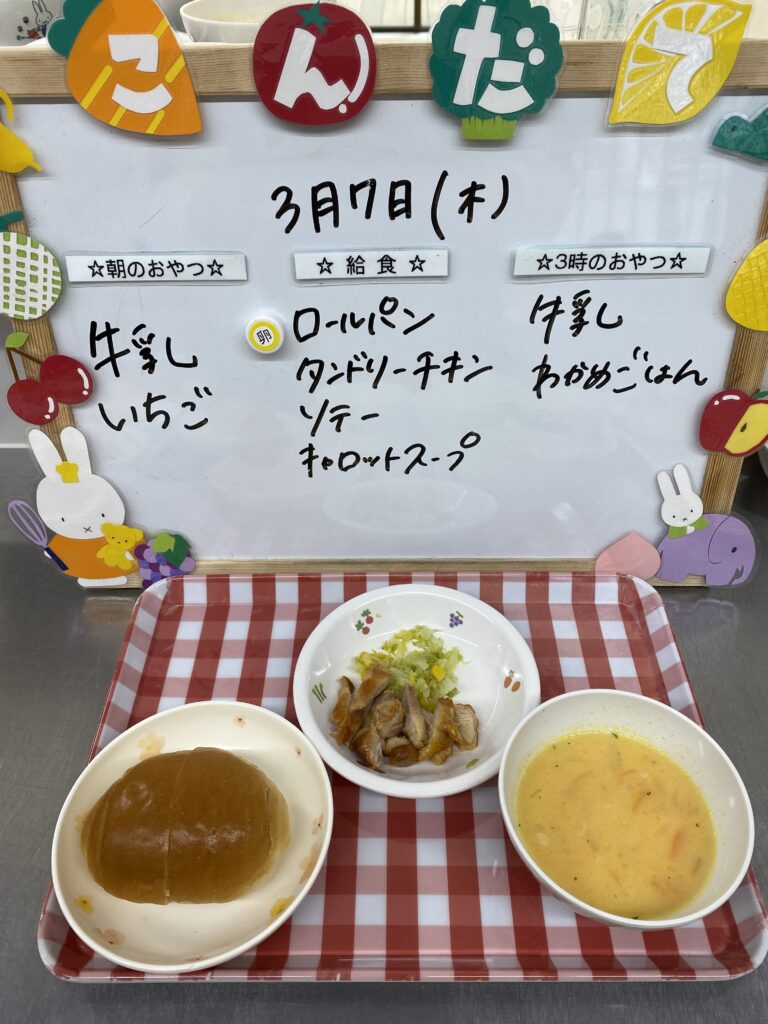 こんだて
3月7日(木)
☆朝のおやつ☆
牛乳
いちご
☆ 給 食 ☆
卵
ロールパン
タンドリーチキン
ソテー
キャロットスープ
☆3時のおやつ☆
牛乳
わかめごはん